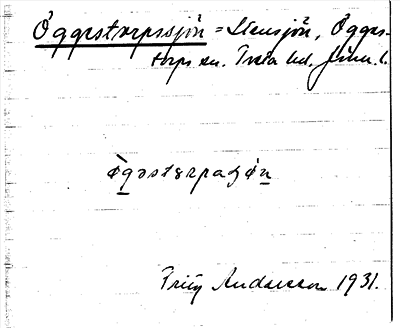 Öggestorpssjön = Stensjön, Ögges-
torps sn. Tveta hd. Jönk. l.
ǫ̀gǝstǝrpaʂǫ́n
Fritz Andersson 1931.